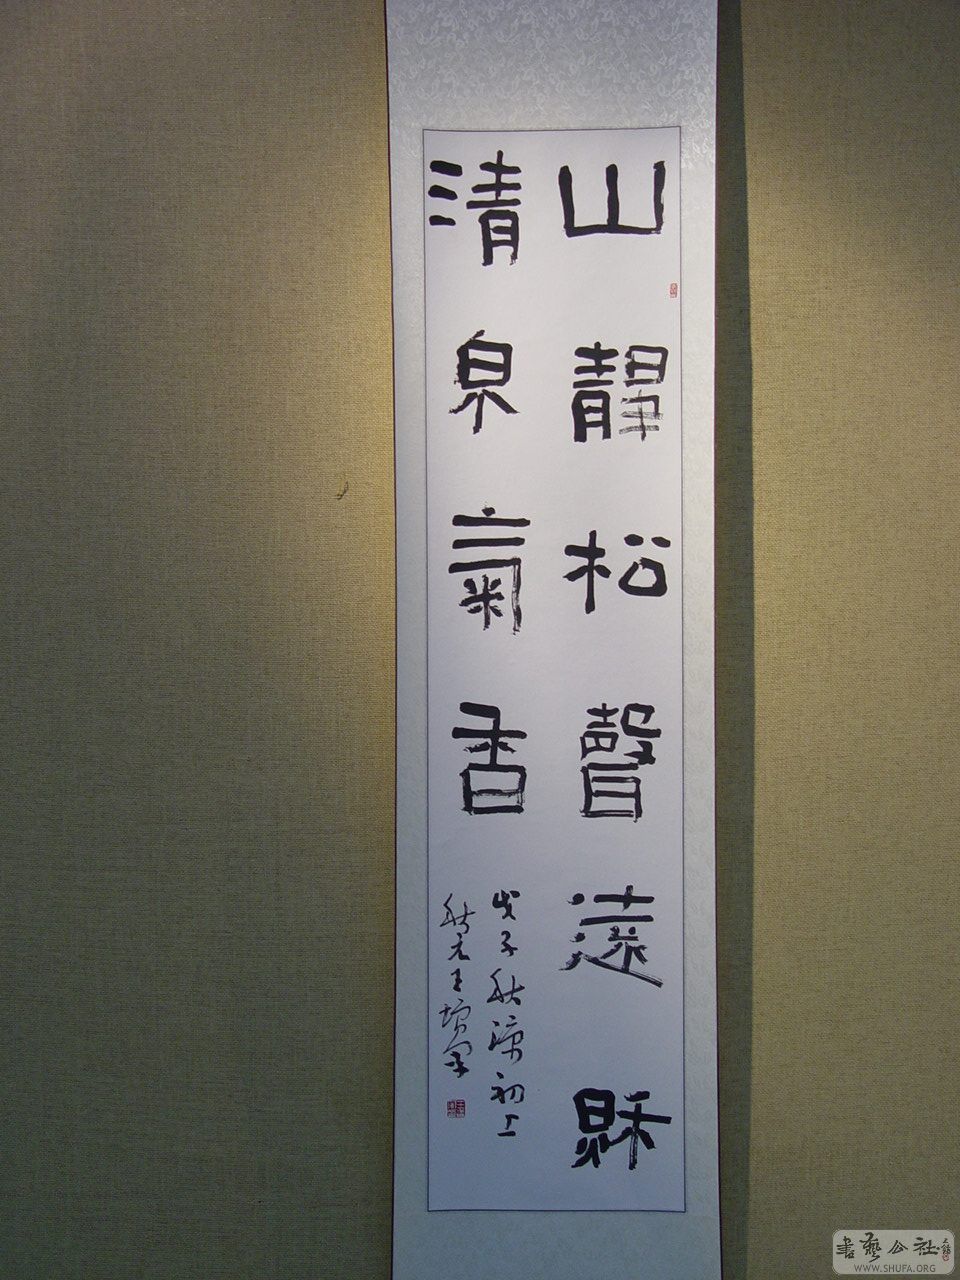 山靜松聲遠秌
清泉氣香
戊子秋涼初上
秋元王
書藝公社
WWW.SHUFA.ORG